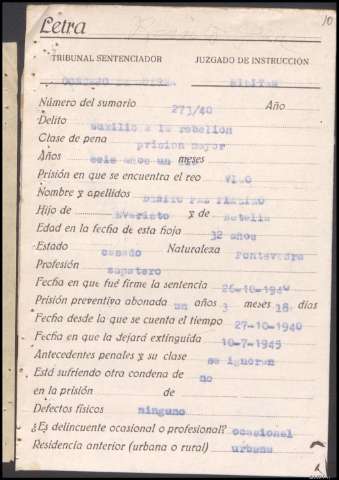 10
Letra
TRIBUNAL SENTENCIADOR JUZGADO DE INSTRUCCIÓN
CONSEJO DE GUERRA MILITAR
Número del sumario 273/40 Año
Delito auxilio a la rebelion
Clase de pena prision mayor
Años seis anos un dia meses
Prisión en que se encuentra el reo VIGO
Nombre y apellidos BENITO PAZ
Hijo de EVaristo y de Natalia
Edad en la fecha de esta hoja 32 años
Estado casado Naturaleza Pontevedra
Profesión zapatero
Fecha en que fué firme la sentencia 26-10-1940
Prisión preventiva abonada un años 3 meses 18 días
Fecha desde la que se cuenta el tiempo 27-10-1940
Fecha en que la dejará extinguida 10-7-1945
Antecedentes penales y su clase se ignoran
Está sufriendo otra condena de no
en la prisión de
Defectos físicos ninguno
¿Es delincuente ocasional o profesional? ocasional
Residencia anterior (urbana o rural) urbana